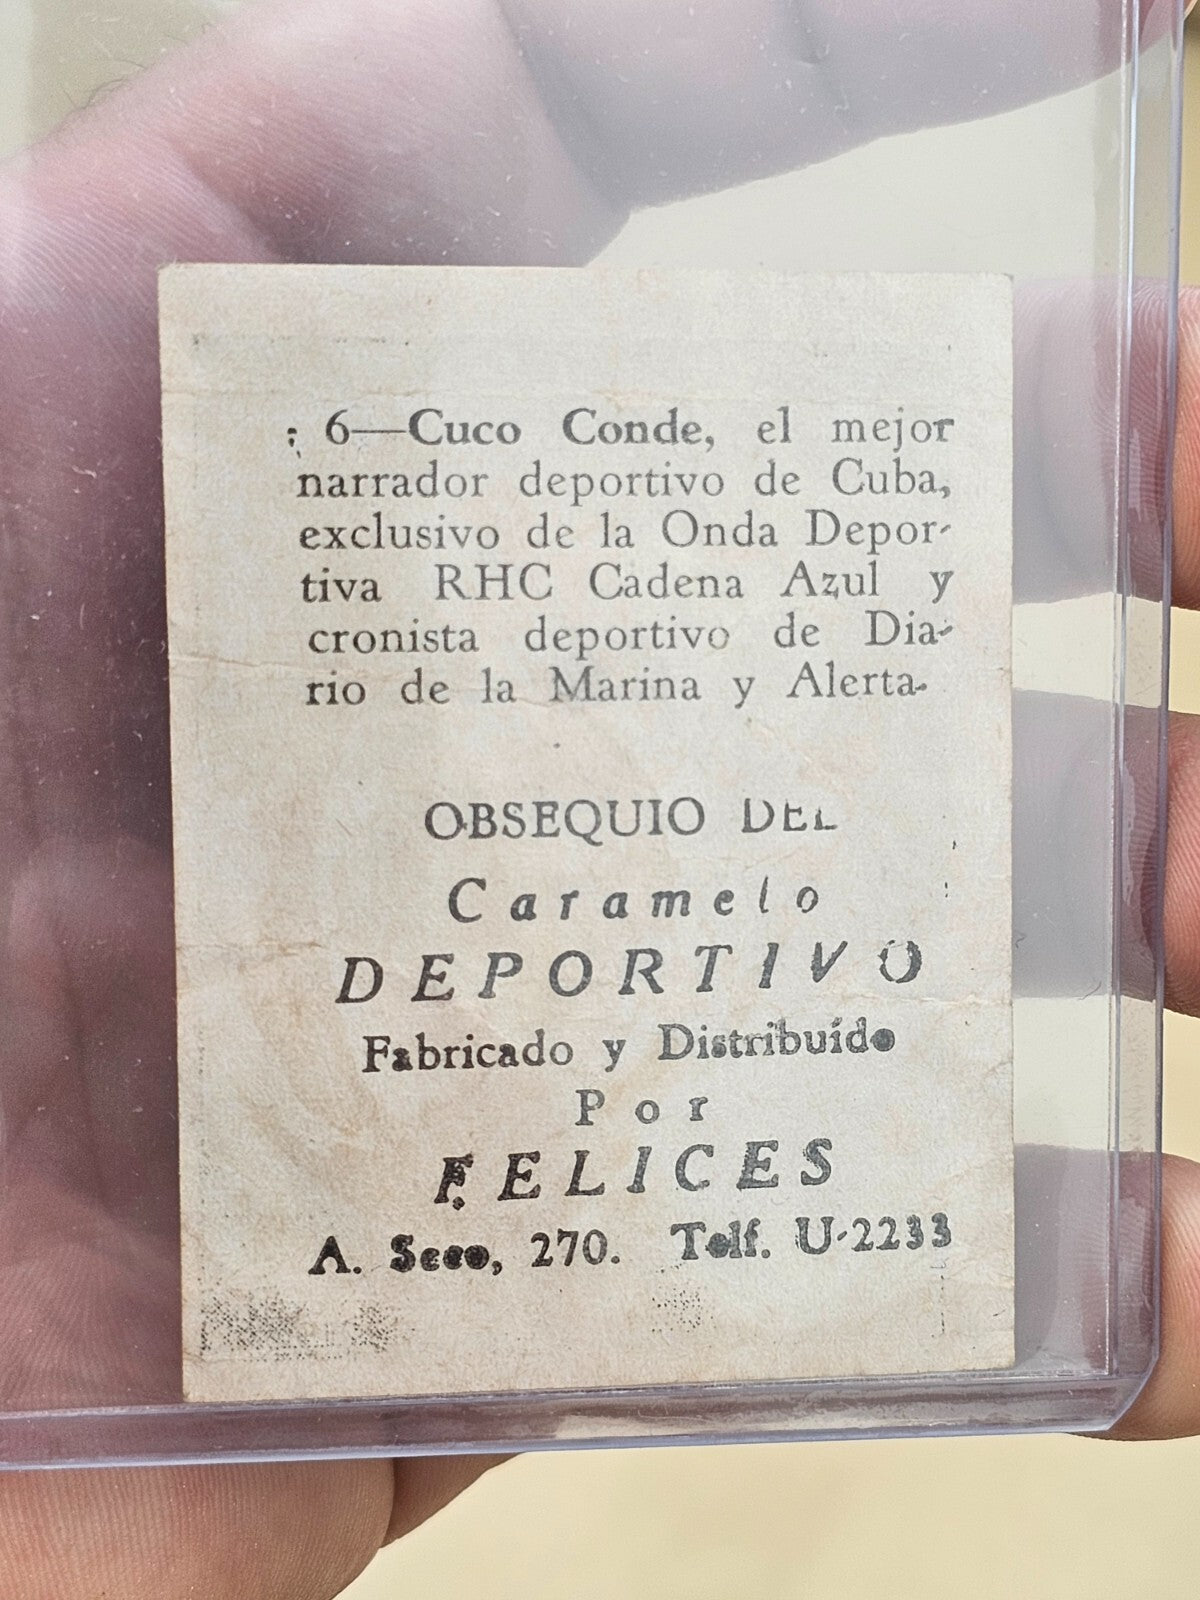 6—Cuco Conde, el mejor
narrador deportivo de Cuba,
exclusivo de la Onda Depor-
tiva RHC Cadena Azul y
cronista deportivo de Dia-
rio de la Marina y Alerta.
OBSEQUIO DEL
Caramelo
DEPORTIVO
Fabricado y Distribuído
Por
FELICES
A. Seco, 270. Telf. U-2233